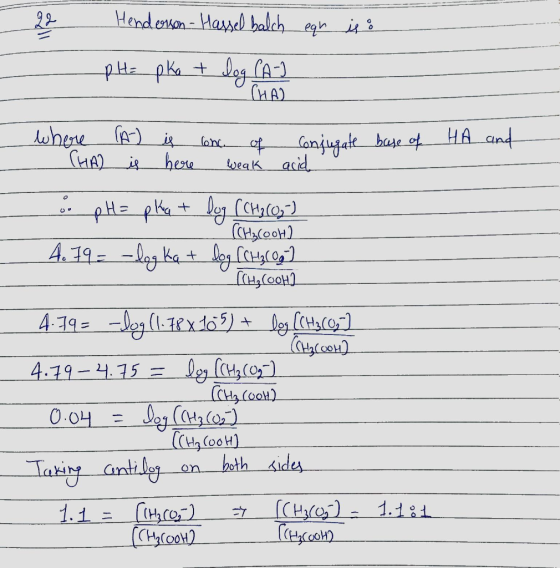 22 Henderson-Hasselbalch eqn is :
pH = pKa + log [A-]/[HA]
where [A-] is conc. of conjugate base of HA and
[HA] is here weak acid
∴ pH = pKa + log [CH3CO2-]/[CH3COOH]
4.79 = -log Ka + log [CH3CO2-]/[CH3COOH]
4.79 = -log(1.78×10-5) + log [CH3CO2-]/[CH3COOH]
4.79 - 4.75 = log [CH3CO2-]/[CH3COOH]
0.04 = log [CH3CO2-]/[CH3COOH]
Taking antilog on both sides
1.1 = [CH3CO2-]/[CH3COOH] ⇒ [CH3CO2-]/[CH3COOH] = 1.1:1